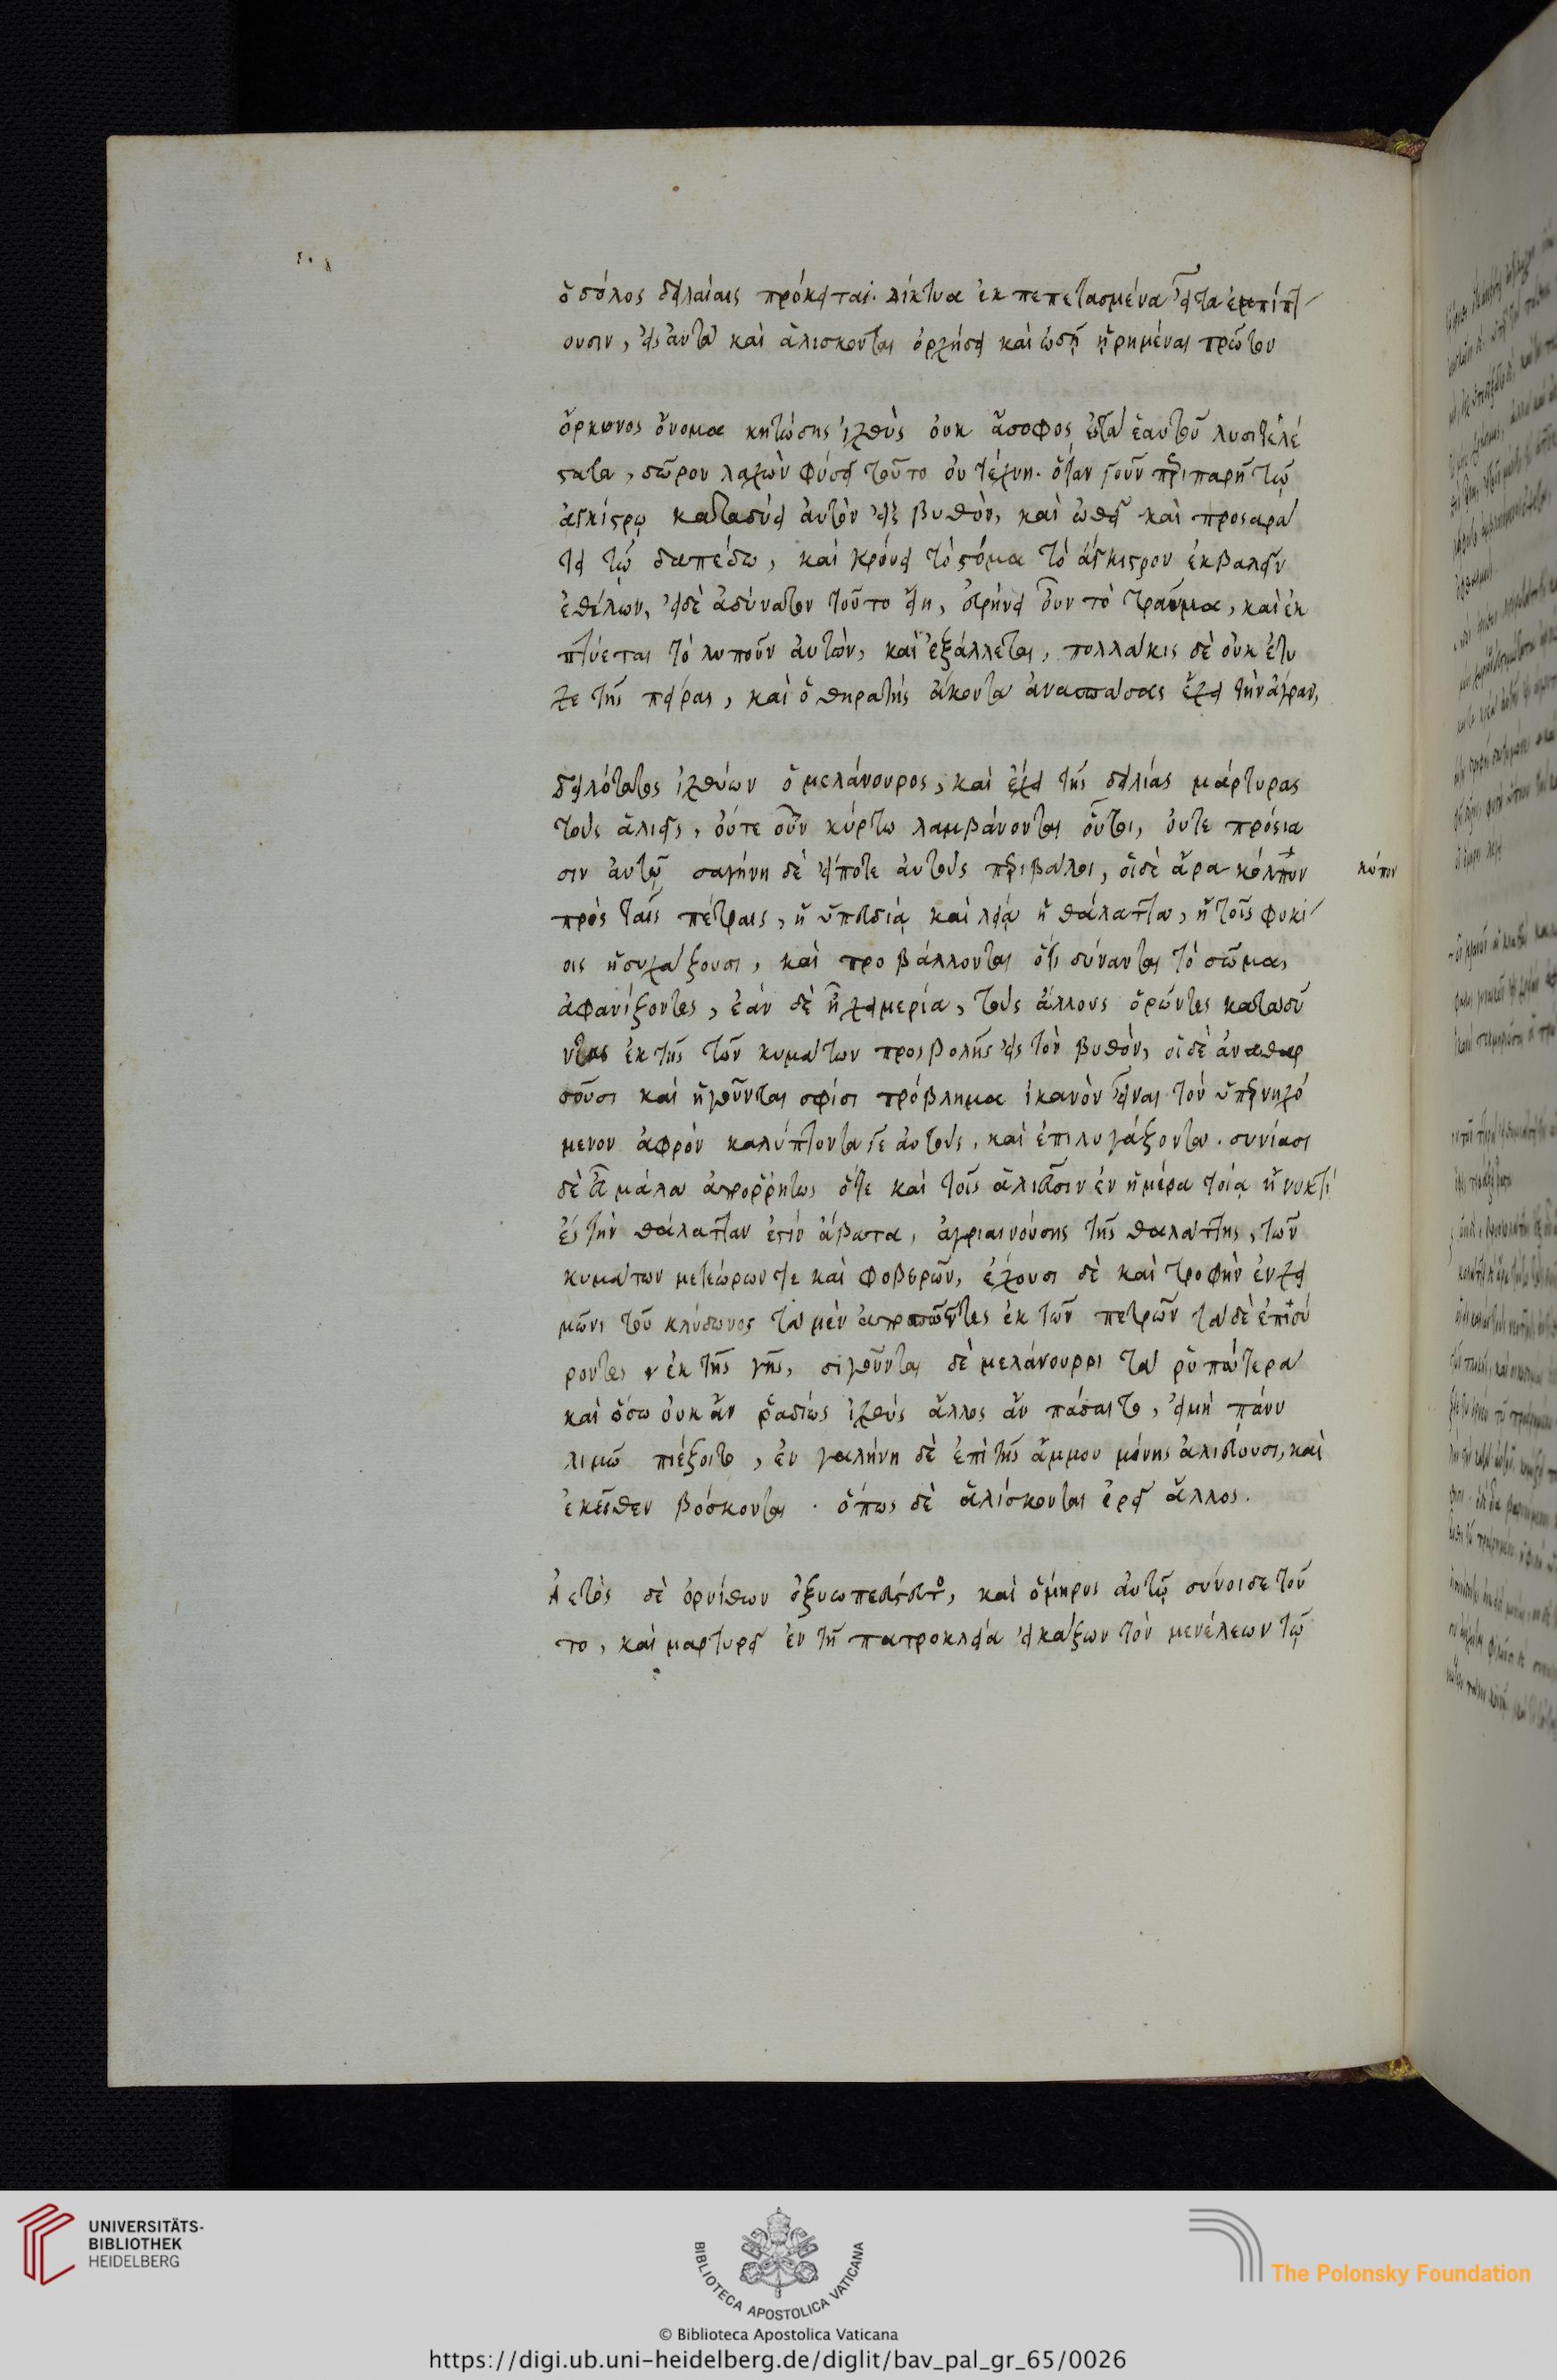 ὁ δόλος δειλαίαις πρόκειται. δίκτυα ἐκπεπετασμένα εἶτα ἐμπίπτ
ουσιν, εἰς αὐτὰ καὶ ἁλίσκονται ὀρχήσει καὶ ᾠδῇ ᾑρημέναι πρῶτον
ὄρκυνος ὄνομα κητώδης ἰχθὺς οὐκ ἄσοφος ἐς τὰ ἑαυτοῦ λυσιτελέ
στατα, δῶρον λαχὼν φύσει τοῦτο οὐ τέχνῃ. ὅταν γοῦν περιπαρῇ τῷ
ἀγκίστρῳ καταδύει αὐτὸν εἰς βυθὸν, καὶ ὠθεῖ καὶ προσαρά
τει τῷ δαπέδω, καὶ κρούει τὸ στόμα τὸ ἄγκιστρον ἐκβαλεῖν
ἐθέλων, εἰ δὲ ἀδύνατον τοῦτο εἴη, εὐρύνει οὖν τὸ τραῦμα, καὶ ἐκ
πτύεται τὸ λυποῦν αὐτὸν, καὶ ἐξάλλεται, πολλάκις δὲ οὐκ ἔτυ
χε τῆς πείρας, καὶ ὁ θηρατὴς ἄκοντα ἀνασπάσας ἔχει τὴν ἄγραν,
δειλότατος ἰχθύων ὁ μελάνουρος, καὶ ἔχει τῆς δειλίας μάρτυρας
τοὺς ἁλιεῖς, οὔτε οὖν κύρτω λαμβάνονται οὗτοι, οὔτε πρόσια
σιν αὐτῷ σαγήνη δὲ εἴποτε αὐτοὺς περιβάλοι, οἱ δὲ ἄρα κόλπον κόπον
πρὸς ταῖς πέτραις, ἢ ὑπευδίᾳ καὶ λείᾳ ἢ θάλαττα, ἢ τοῖς φυκί
οις ἡσυχάζουσι, καὶ προβάλλονται ὅτι δύνανται τὸ σῶμα,
ἀφανίζοντες, ἐὰν δὲ ᾖ χειμερία, τοὺς ἄλλους ὁρῶντες καταδύ
ντας ἐκ τῆς τῶν κυμάτων προσβολῆς εἰς τὸν βυθὸν, οἱ δὲ ἀναθαρ
ροῦσι καὶ ἡγοῦνται σφίσι πρόβλημα ἱκανὸν εἶναι τὸν ὑπερνηχό
μενον ἀφρὸν καλύπτοντά τε αὐτοὺς, καὶ ἐπιλυγάζοντα. συνίασι
δὲ εὖ μάλα ἀπορρήτως ὅτε καὶ τοῖς ἁλιεῦσιν ἐν ἡμέρα τοίᾳ ἢ νυκτὶ
ἐς τὴν θάλατταν ἐστὶν ἄβατα, ἀγριαινούσης τῆς θαλάττης, τῶν
κυμάτων μετεώρων τε καὶ φοβερῶν, ἔχουσι δὲ καὶ τροφὴν ἐν χει
μῶνι τοῦ κλύδωνος τὰ μὲν ἀποσπῶντες ἐκ τῶν πετρῶν τὰ δὲ ἐπισύ
ροντες ἐκ τῆς γῆς, σιτοῦνται δὲ μελάνουροι τὰ ῥυπώτερα
καὶ ὅσω οὐκ ἂν ῥαδίως ἰχθὺς ἄλλος ἂν πάσαιτο, εἰ μὴ πάνυ
λιμῶ πιέζοιτο, ἐν γαλήνη δὲ ἐπὶ τῆς ἄμμου μόνης ἁλιεύουσι, καὶ
ἐκεῖθεν βόσκονται. ὅπως δὲ ἁλίσκονται ἐρεῖ ἄλλος.
Ἀετὸς δὲ ὀρνίθων ὀξυωπέστατο, καὶ ὅμηρος αὐτῷ σύνοιδε τοῦ
το, καὶ μαρτυρεῖ ἐν τῇ πατροκλείᾳ εἰκάζων τὸν μενέλεων τῷ
UNIVERSITÄTS-
BIBLIOTHEK
HEIDELBERG
BIBLIOTECA APOSTOLICA VATICANA
The Polonsky Foundation
© Biblioteca Apostolica Vaticana
https://digi.ub.uni-heidelberg.de/diglit/bav_pal_gr_65/0026